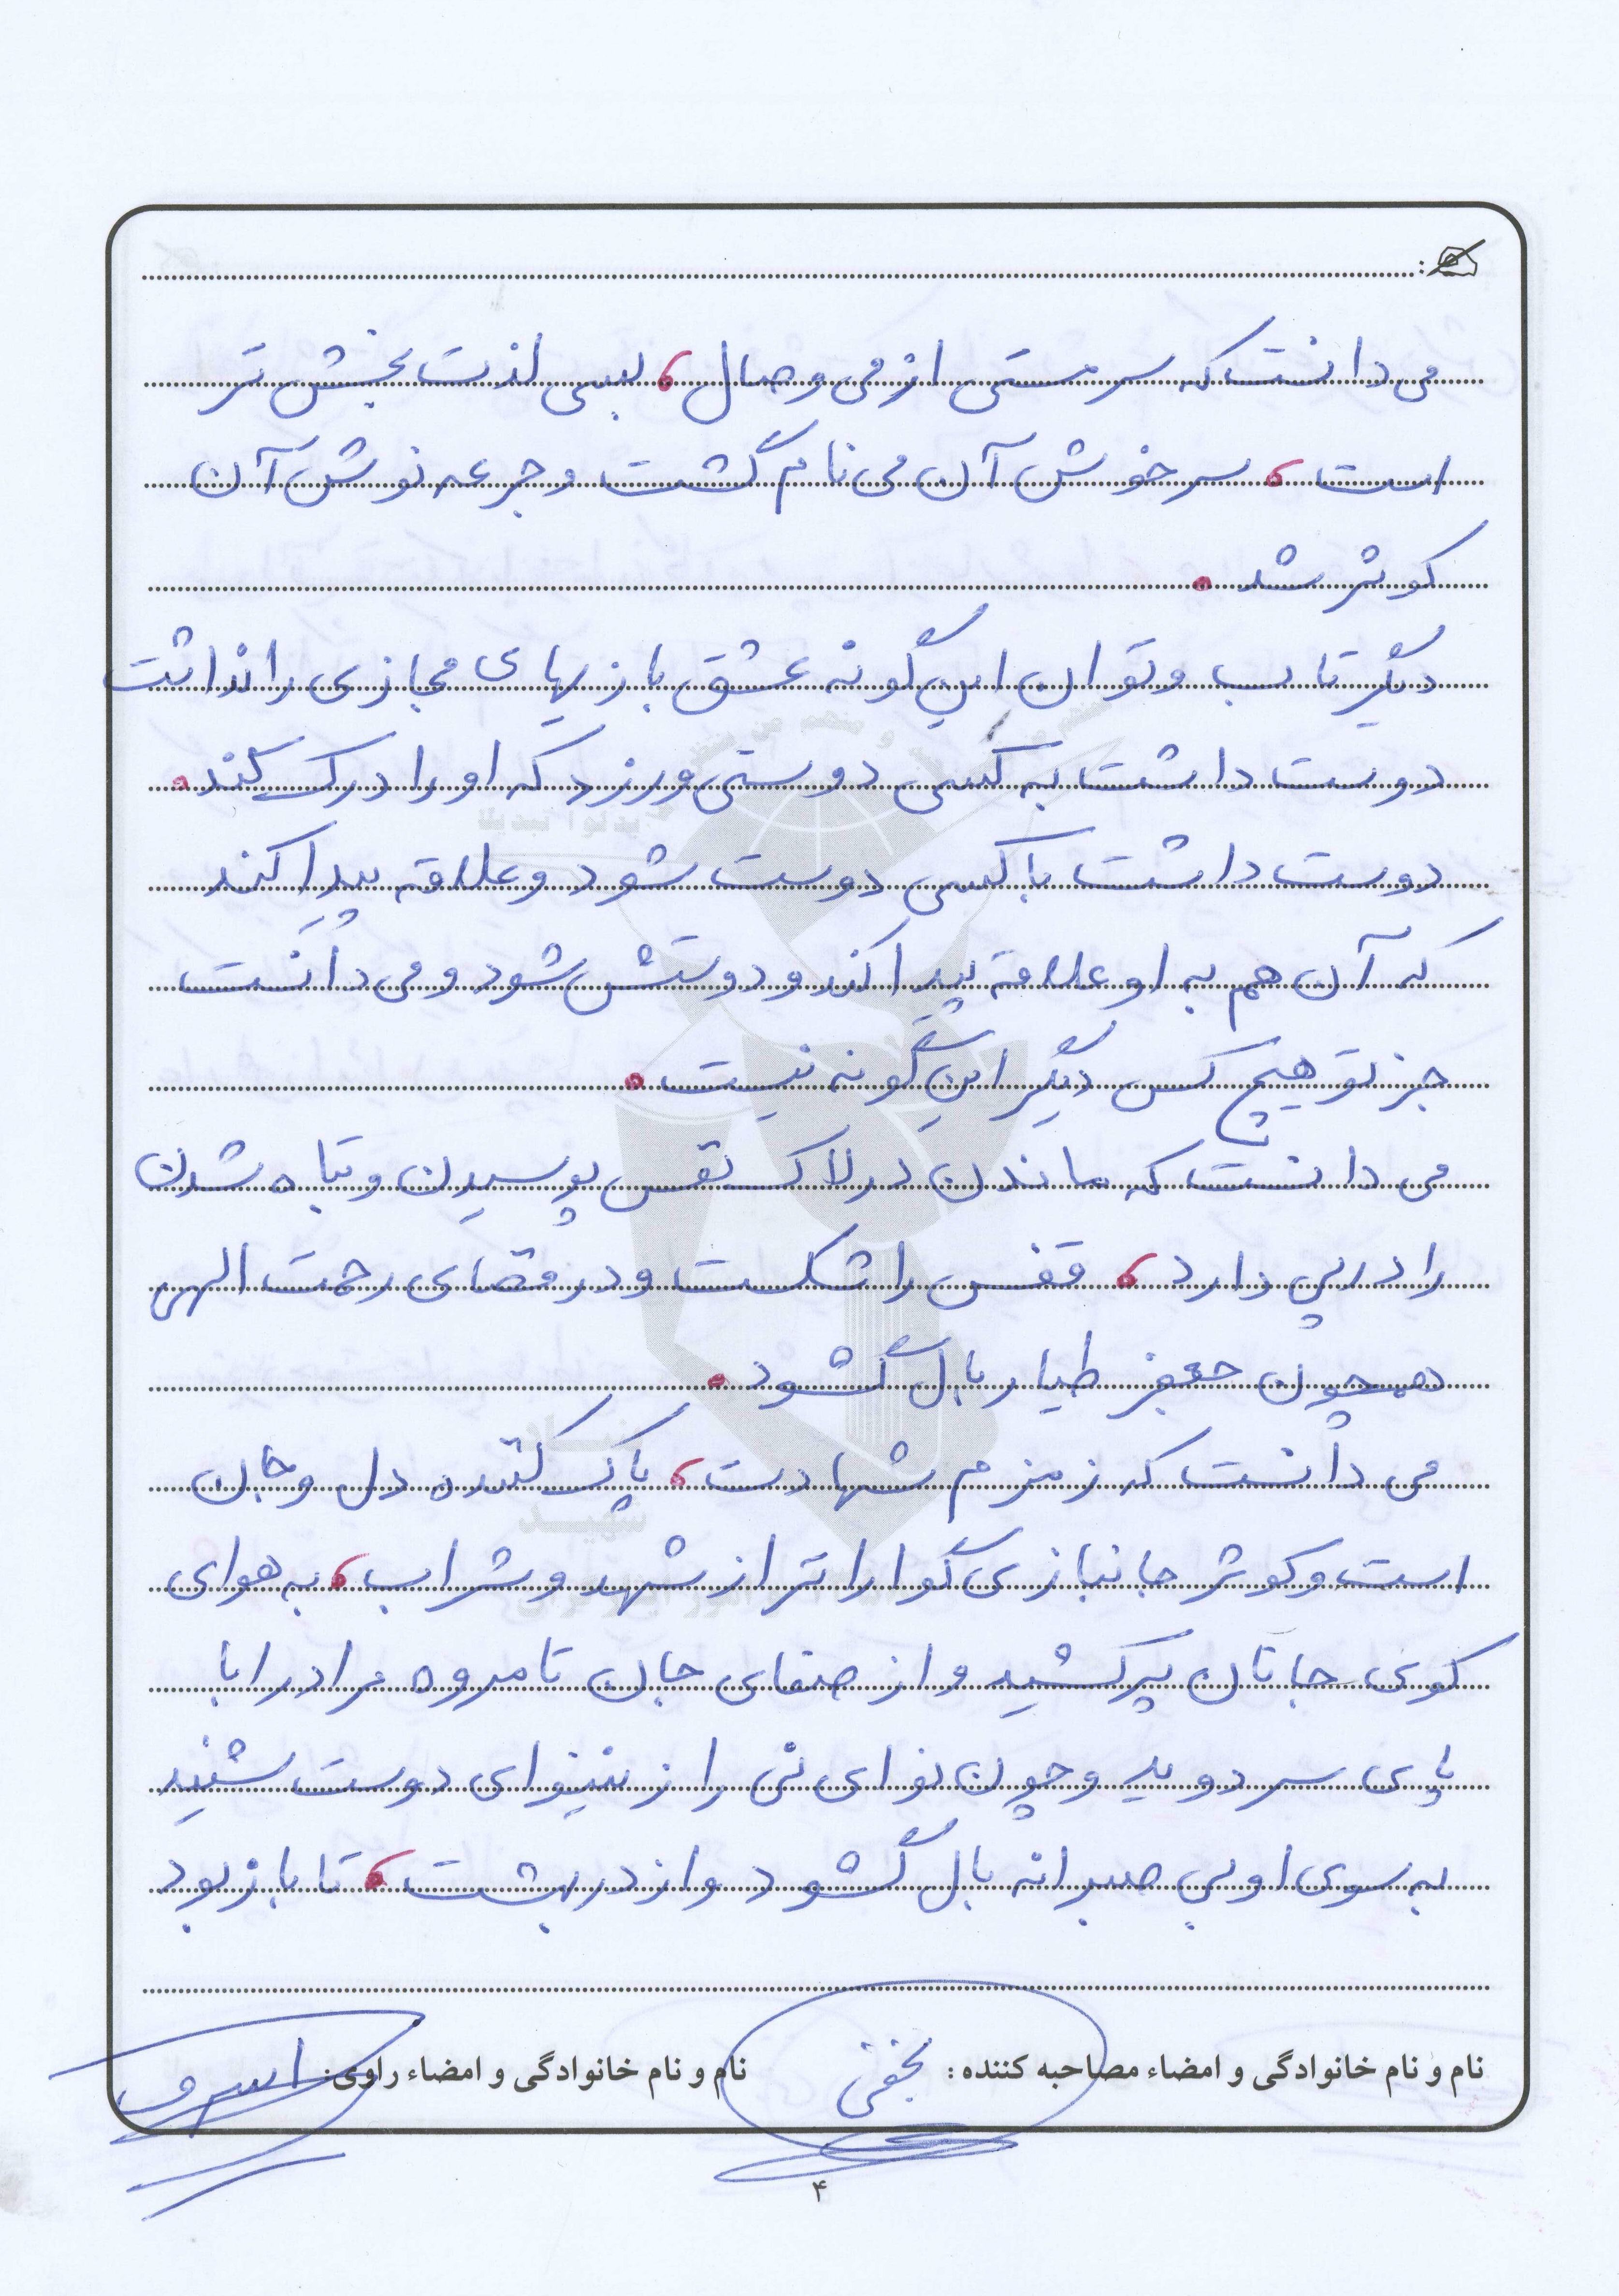 می دانست که سرمستی از می وصال، بسی لذت بخش تر
است، سرخوش آن می نام گشت و جرعه نوش آن
کوثر شد.
دیگر تاب و توان این گونه عشق بازیهای مجازی را نداشت
دوست داشت به کسی دوستی ورزد که او را درک کند.
دوست داشت با کسی دوست شود و علاقه پیدا کند
که آن هم به او علاقه پیدا کند و دوستش شود و می دانست
جز تو هیچ کس دیگر این گونه نیست.
می دانست که ماندن در لاک نفس پوسیدن و تباه شدن
را در پی دارد، قفس را شکست و در فضای رحمت الهی
همچون جعفر طیار بال گشود.
می دانست که زمزم شهادت، پاک کننده دل و جان
است و کوثر جانبازی گواراتر از شهد و شراب، به هوای
کوی جانان پر کشید و از صفای جان تا مروه مراد را با
پای سر دوید و چون نوای نی را ز نینوای دوست شنید
به سوی او بی صبرانه بال گشود و از در بهشت، تا باز بود
نام و نام خانوادگی و امضاء مصاحبه کننده: نجفی نام و نام خانوادگی و امضاء راوی:
۴